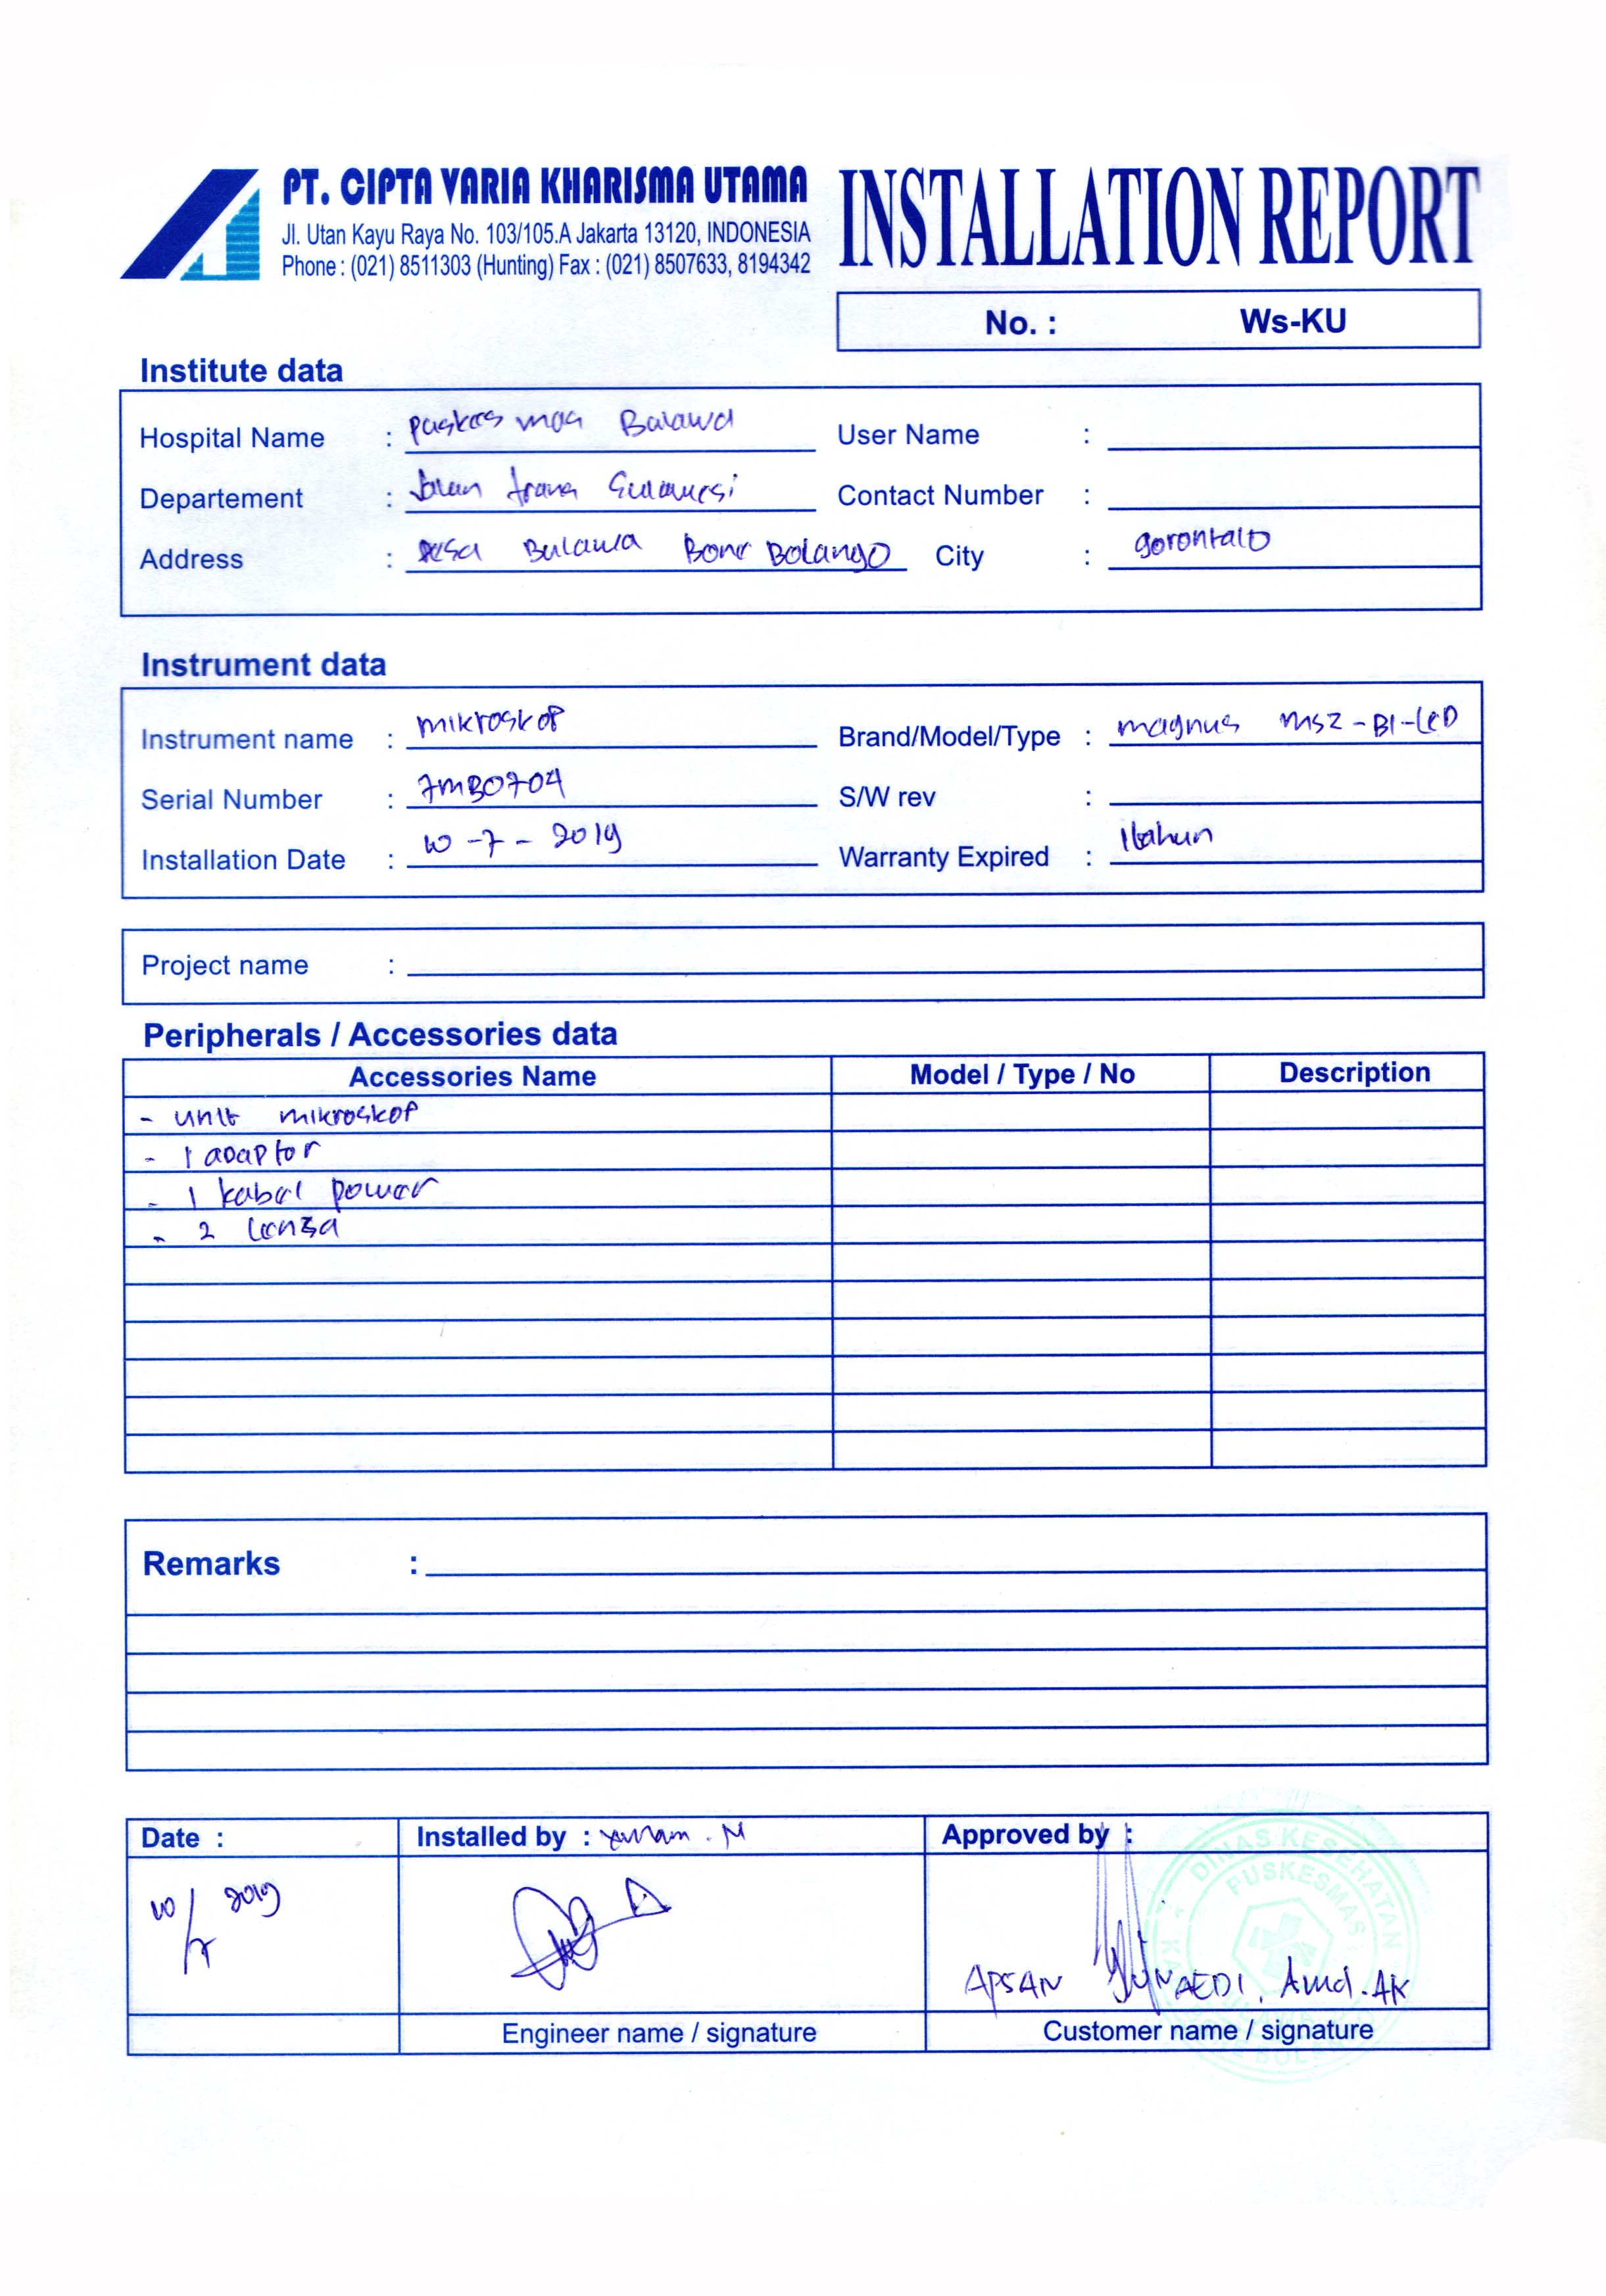 PT. CIPTA VARIA KHARISMA UTAMA
Jl. Utan Kayu Raya No. 103/105.A Jakarta 13120, INDONESIA
Phone : (021) 8511303 (Hunting) Fax : (021) 8507633, 8194342
INSTALLATION REPORT
No. : Ws-KU
Institute data
Hospital Name : puskesmas Bulawa User Name :
Departement : Jalan trans Sulawesi Contact Number :
Address : Desa Bulawa Bone Bolango City : gorontalo
Instrument data
Instrument name : mikroskop Brand/Model/Type : magnus msz-BI-LED
Serial Number : 7MB0704 S/W rev :
Installation Date : 10-7-2019 Warranty Expired : 1 tahun
Project name :
Peripherals / Accessories data
Accessories Name Model / Type / No Description
- unit mikroskop
- 1 adaptor
- 1 kabel power
- 2 lensa
Remarks :
Date : Installed by : Approved by :
10/7 2019
APSAN JUNAEDI, Amd.AK
Engineer name / signature Customer name / signature
DINAS KESEHATAN
PUSKESMAS